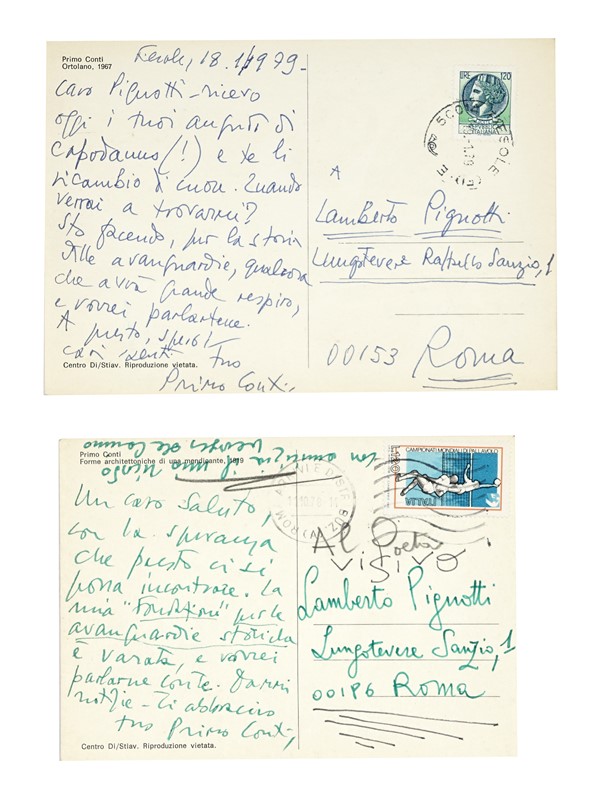 Primo Conti
Ortolano, 1967
Fiesole, 18.1.1979-
Caro Pignotti - ricevo
oggi i tuoi auguri di
capodanno (!) e te li
ricambio di cuore. Quando
verrai a trovarmi?
Sto facendo, per la storia
delle avanguardie, qualcosa
che avrà grande respiro,
e vorrei parlartene.
A presto, spero!
cari saluti tuo
Primo Conti
Centro Di/Stiav. Riproduzione vietata.
LIRE 120
ITALIANA
FIESOLE
A
Lamberto Pignotti
Lungotevere Raffaello Sanzio, 1
00153 Roma
con amicizia
Primo Conti
Forme architettoniche di una mendicante, 1919
Un caro saluto,
con la speranza
che presto ci si
possa incontrare. La
mia "Fondazione" per le
avanguardie storiche
è varata, e vorrei
parlarne con te. Dammi
notizie - Ti abbraccio
tuo Primo Conti,
Centro Di/Stiav. Riproduzione vietata.
CAMPIONATI MONDIALI DI PALLAVOLO
ITALIA
Al Poeta
VISIVO!
Lamberto Pignotti
Lungotevere Sanzio, 1
00196 Roma